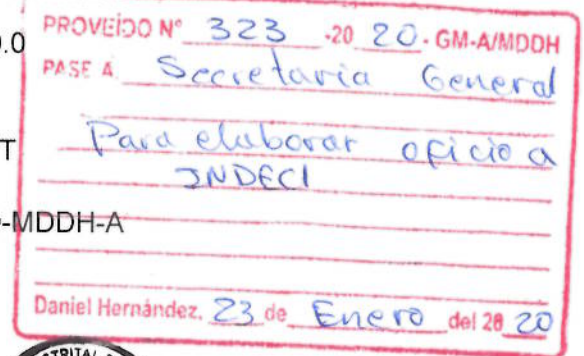 0.0
PROVEÍDO N° 323 -20 20 - GM-A/MDDH
PASE A Secretaria General
T
Para elaborar oficio a
INDECI
-MDDH-A
Daniel Hernández, 23 de Enero del 20 20